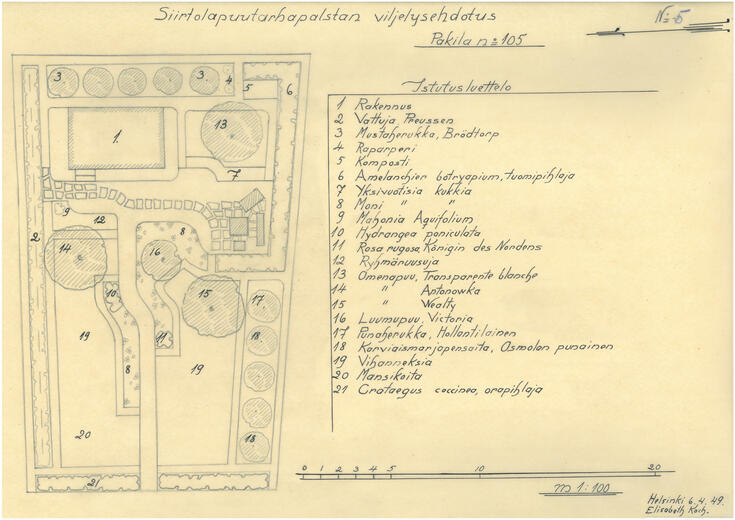 Siirtolapuutarhapalstan viljelysehdotus
N:o 5
Pakila n:o 105
Istutusluettelo
1 Rakennus
2 Vattuja, Preussen
3 Mustaherukka, Brödtorp
4 Raparperi
5 Komposti
6 Amelanchier botryapium, tuomipihlaja
7 Yksivuotisia kukkia
8 Moni " "
9 Mahonia Aquifolium
10 Hydrangea paniculata
11 Rosa rugosa, Königin des Nordens
12 Ryhmäruusuja
13 Omenapuu, Transparente blanche
14 " Antonowka
15 " Wealty
16 Luumupuu, Victoria
17 Punaherukka, Hollantilainen
18 Karviaismarjapensaita, Osmolan punainen
19 Vihanneksia
20 Mansikoita
21 Crataegus coccinea, orapihlaja
3 3 4 5 6
1. 13
7
9 12 8
2 14 16
10 15 17
19 11 19 18
8
20 18
21
0 1 2 3 4 5 10 20
m 1:100
Helsinki 6.4.49.
Elisabeth Koch.